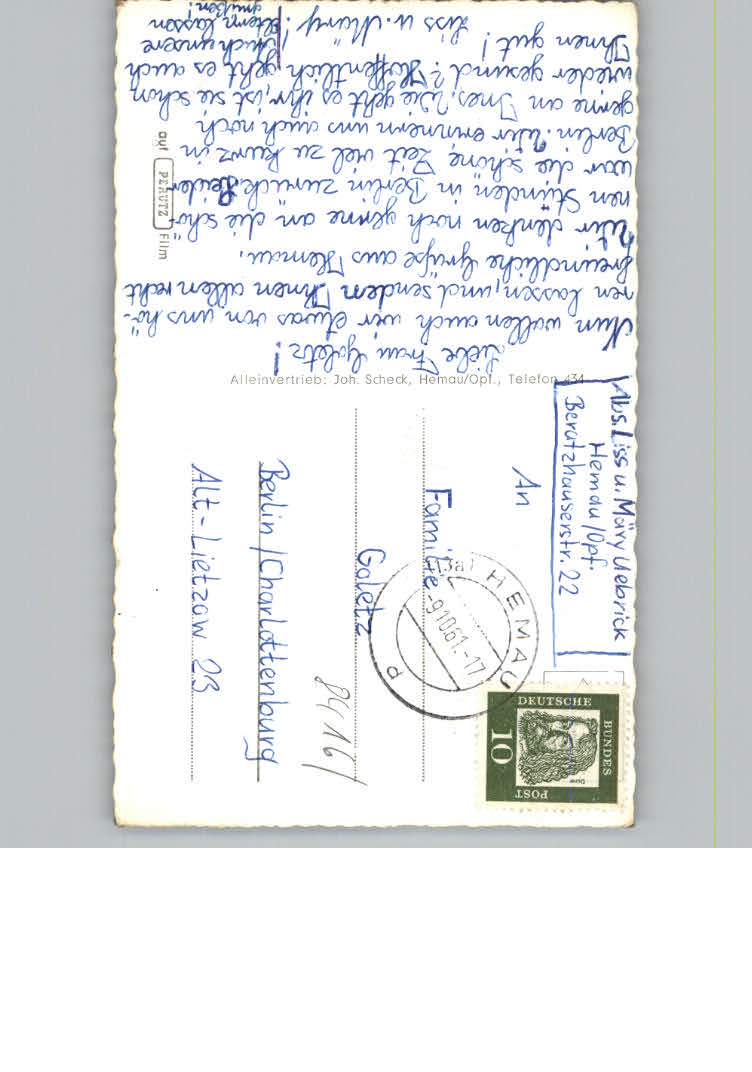 Liebe Frau Goletz!
Nun wollen auch wir etwas von uns hö-
ren lassen, und senden Ihnen allen recht
freundliche Grüße aus Hemau.
Wir denken noch gerne an die schö-
nen Stunden in Berlin zurück. Leider
war die schöne Zeit viel zu kurz in
Berlin. Wir erinnern uns auch noch
gerne an Ines. Wie geht es ihr, ist sie schon
wieder gesund? Hoffentlich geht es auch
Ihnen gut!
Liss u. Märy!
Auch unsere
Eltern lassen
grüßen!
auf PERUTZ Film
Alleinvertrieb: Joh. Scheck, Hemau/Opf., Telefon 434
Abs. Liss u. Märy Uebrick
Hemau/Opf.
Beratzhauserstr. 22
An
Familie
Goletz
Berlin/Charlottenburg
Alt-Lietzow 23
8416/
(13a) HEMAU
-9.10.61.-17
P
DEUTSCHE
BUNDES
POST
10
Dürer